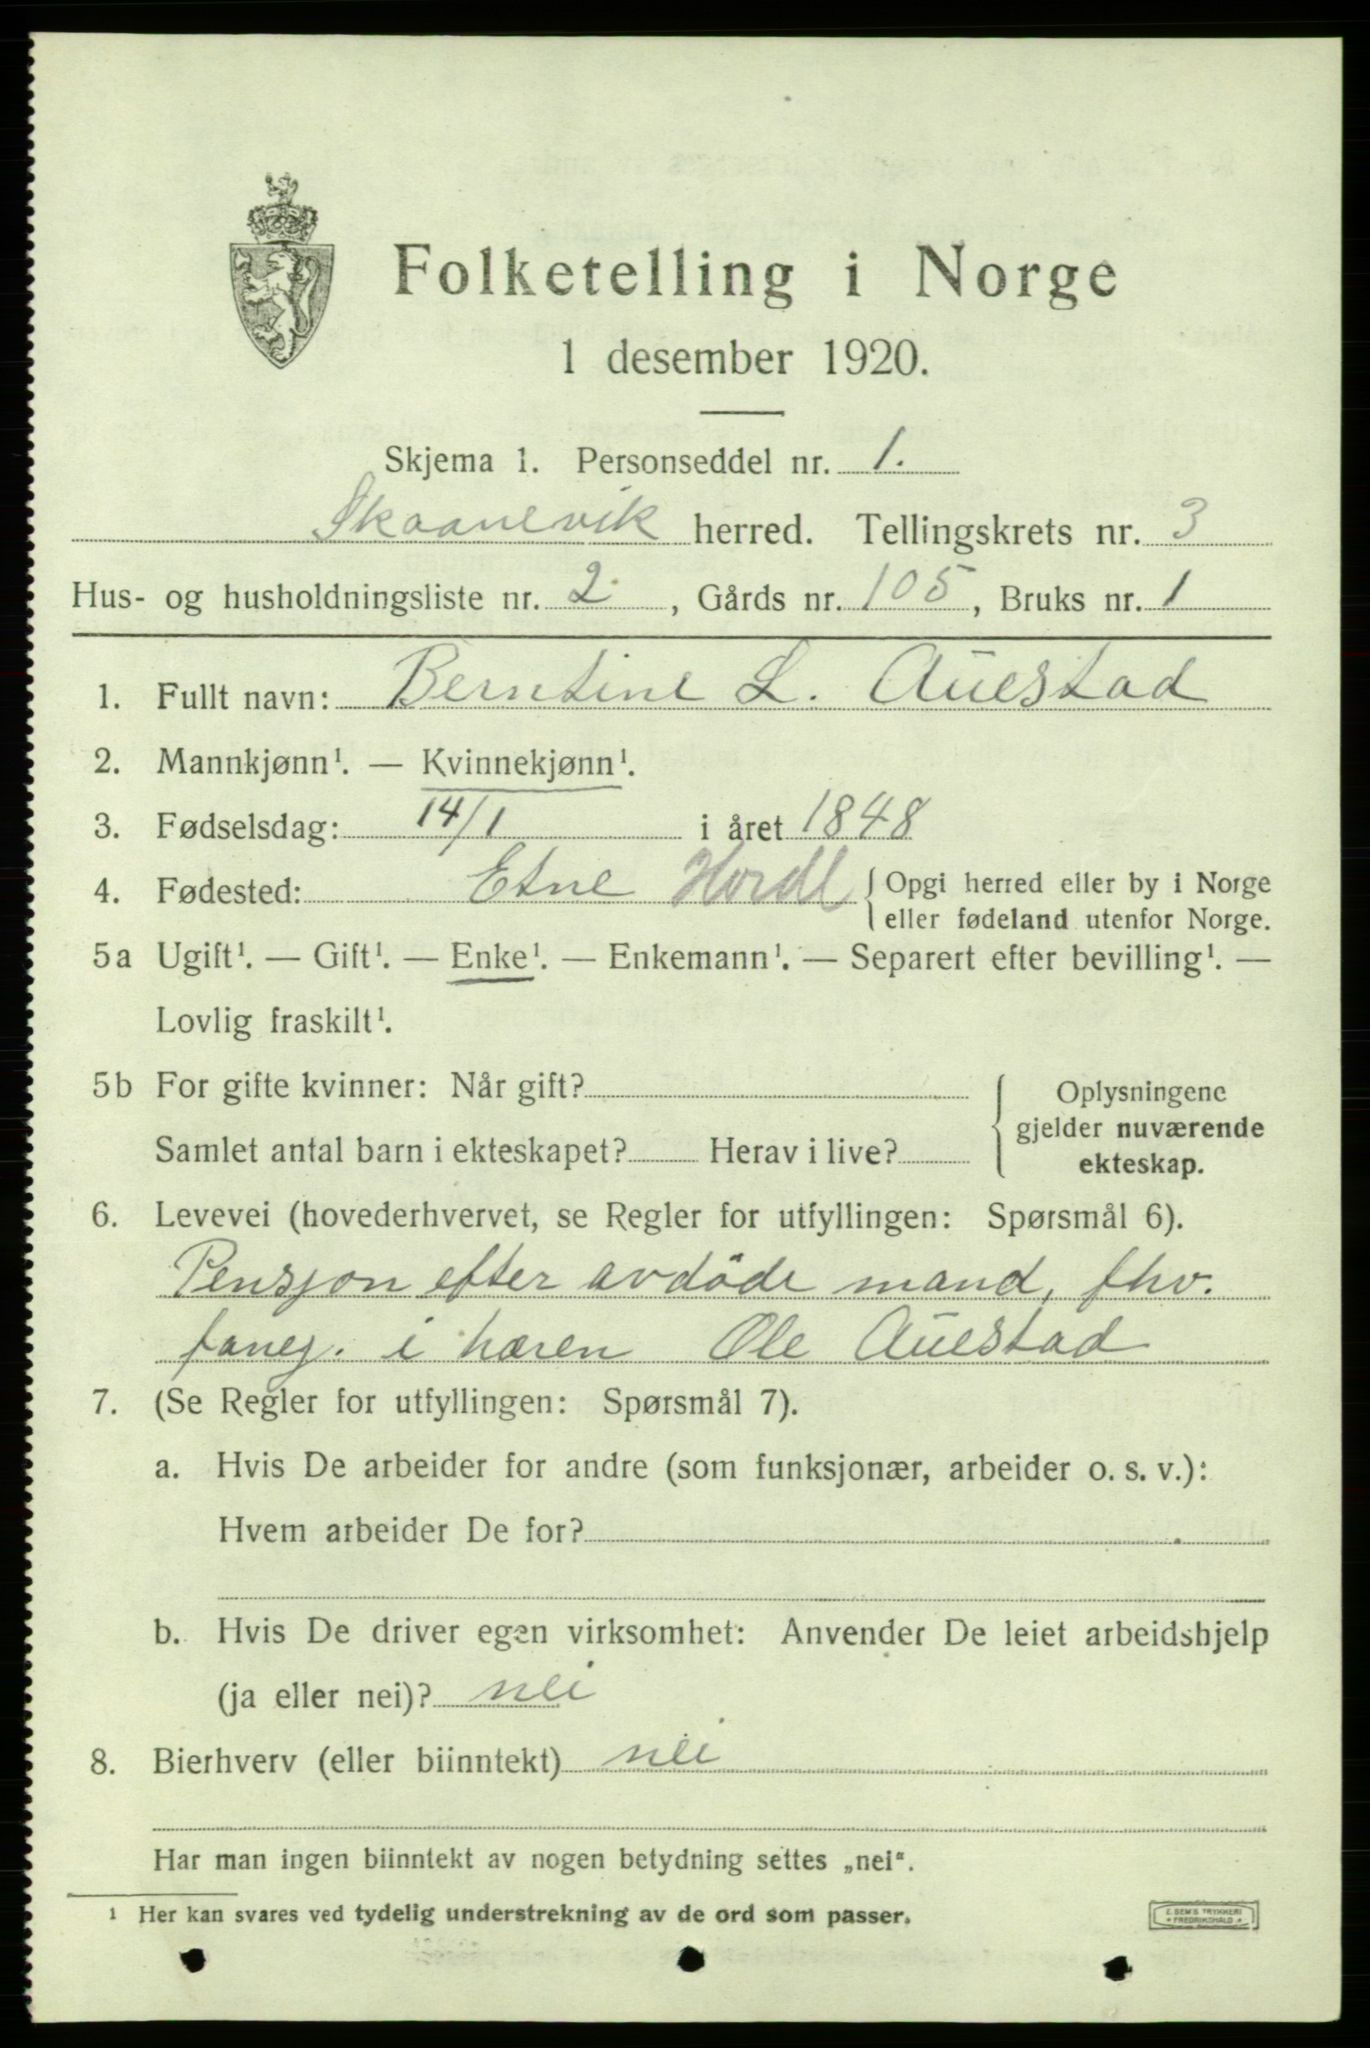 Folketelling i Norge
1 desember 1920.
Skjema 1. Personseddel nr. 1.
Skaanevik herred. Tellingskrets nr. 3
Hus- og husholdningsliste nr. 2, Gårds nr. 105, Bruks nr. 1
1. Fullt navn: Berntine L. Auestad
2. Mannkjønn¹. — Kvinnekjønn¹.
3. Fødselsdag: 14/1 i året 1848
4. Fødested: Etne Hordl { Opgi herred eller by i Norge
eller fødeland utenfor Norge.
5a Ugift¹. — Gift¹. — Enke¹. — Enkemann¹. — Separert efter bevilling¹. —
Lovlig fraskilt¹.
5b For gifte kvinner: Når gift?
Samlet antal barn i ekteskapet? Herav i live?
Oplysningene
gjelder nuværende
ekteskap.
6. Levevei (hovederhvervet, se Regler for utfyllingen: Spørsmål 6).
Pensjon efter avdöde mand, fhv.
fanej. i hæren Ole Auestad
7. (Se Regler for utfyllingen: Spørsmål 7).
a. Hvis De arbeider for andre (som funksjonær, arbeider o. s. v.):
Hvem arbeider De for?
b. Hvis De driver egen virksomhet: Anvender De leiet arbeidshjelp
(ja eller nei)? nei
8. Bierhverv (eller biinntekt) nei
Har man ingen biinntekt av nogen betydning settes „nei“.
¹ Her kan svares ved tydelig understrekning av de ord som passer.
E. SEM'S TRYKKERI
FREDRIKSHALD